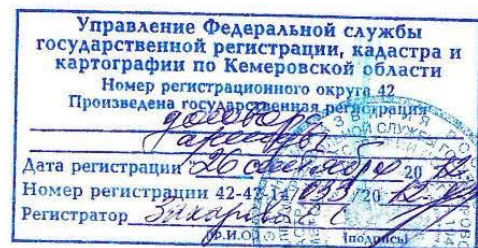 Управление Федеральной службы
государственной регистрации, кадастра и
картографии по Кемеровской области
Номер регистрационного округа 42
Произведена государственная регистрация
договора
аренды
Дата регистрации "26 сентября 20 12
Номер регистрации 42-42- /033/20
Регистратор Захарова
(Ф.И.О.) (подпись)